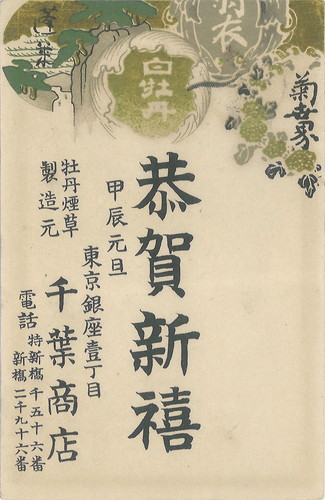 菊世界
羽衣
白牡丹
蓬莱
恭賀新禧
甲辰元旦
東京銀座壹丁目
牡丹煙草
製造元
千葉商店
電話
特新橋千五十六番
新橋二千九十六番